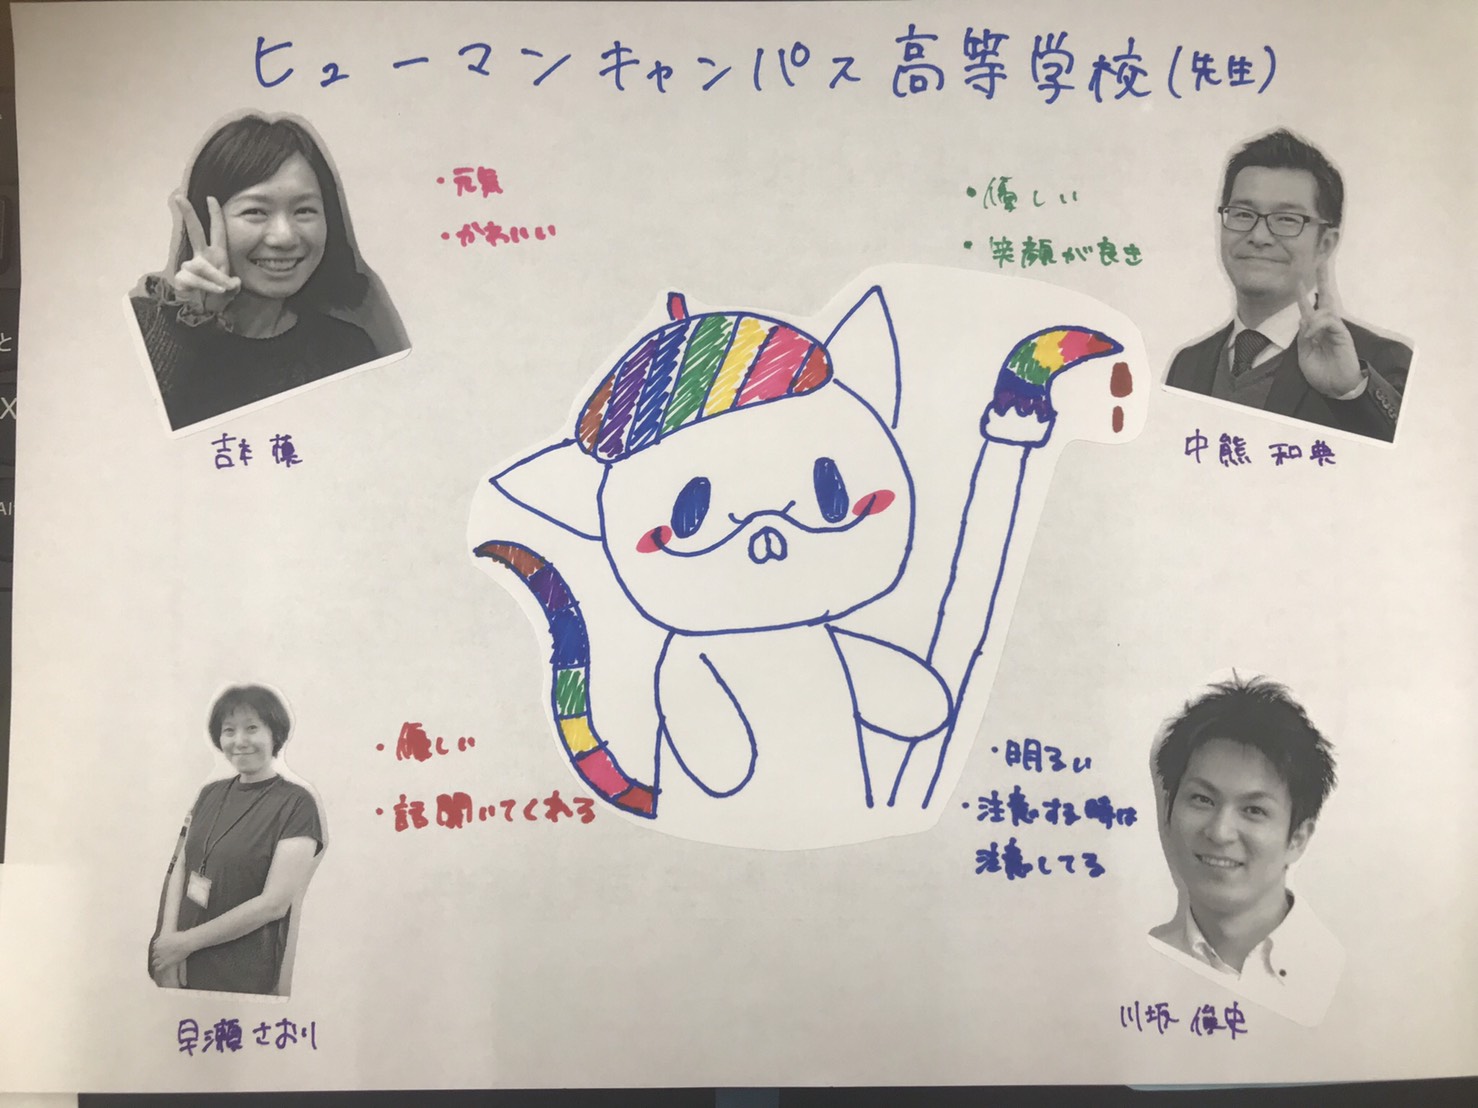 ヒューマンキャンパス高等学校(先生)
・元気
・かわいい
吉本 穂
・優しい
・笑顔が良き
中熊 和典
・優しい
・話聞いてくれる
早瀬さおり
・明るい
・注意する時は
注意してる
川坂 俊史